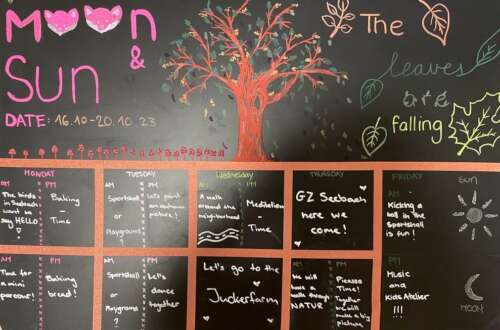 MOON
&
Sun
DATE: 16.10-20.10.23
The
leaves
are
falling
MONDAY
AM
PM
The birds
in Seebach
want to
say HELLO
!
Baking
-
Time
TUESDAY
AM
PM
Sportshall
or
Playground
?
Let's paint
an autumn
picture!
Wednesday
AM
PM
A walk
around the
neighborhood
Meditation
-
Time
THURSDAY
GZ Seebach
here we
come!
FRIDAY
AM
Kicking a
ball in the
Sportshall
is fun!
SUN
AM
PM
Time for
a mini
parcour!
Baking
bread!
AM
PM
Sportshall
or
Playground
?
Let's
dance
together
Let's go to the
Juckerfarm
AM
PM
We will
have a
walk through
NATUR
Please
Time!
Together
we will
make a big
picture
PM
Music
and
Kids Atelier
!!!
MOON